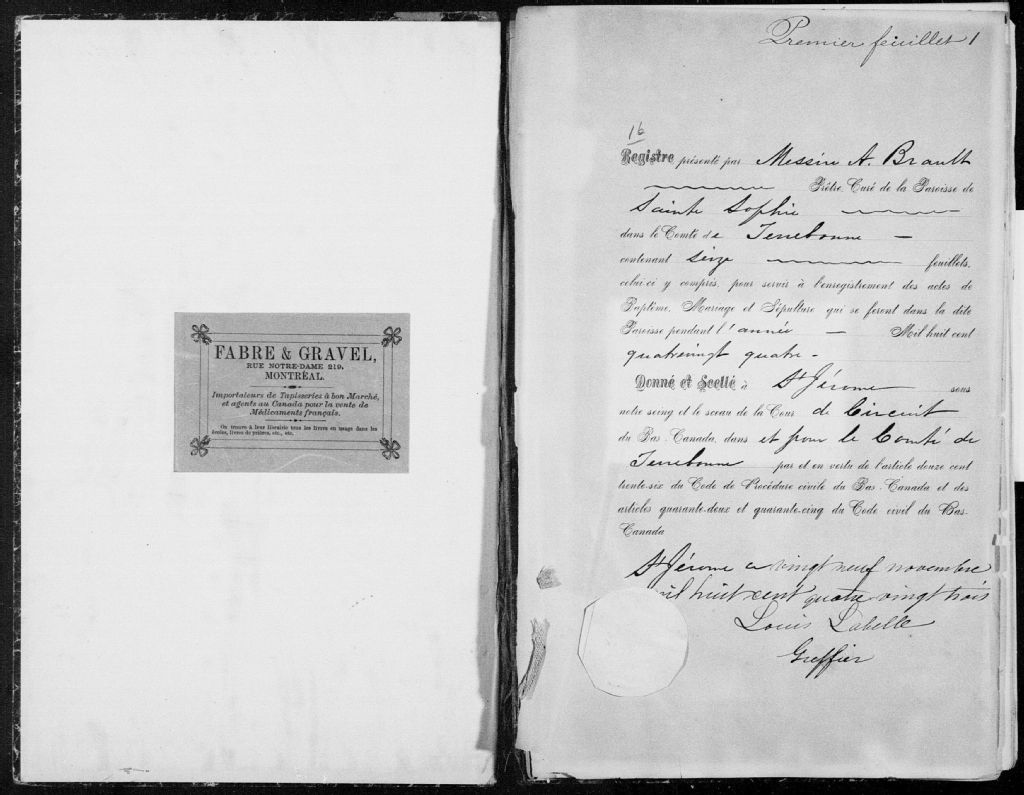 FABRE & GRAVEL,
RUE NOTRE-DAME 219,
MONTRÉAL.
Importateurs de Tapisseries à bon Marché,
et agents au Canada pour la vente de
Médicaments français.
On trouve à leur librairie tous les livres en usage dans les
écoles, livres de prières, etc., etc.
Premier feuillet 1
16
Registre présenté par Messire A. Brault
Prêtre, Curé de la Paroisse de
Sainte Sophie
dans le Comté de Terrebonne –
contenant seize feuillets,
celui-ci y compris, pour servir à l'enregistrement des actes de
Baptême, Mariage et Sépulture qui se feront dans la dite
Paroisse pendant l'année – Mil huit cent
quatrevingt quatre -
Donné et Scellé à St Jérome sous
notre seing et le sceau de la Cour de Circuit
du Bas-Canada, dans et pour le Comté de
Terrebonne par et en vertu de l'article douze cent
trente-six du Code de Procédure civile du Bas-Canada et des
articles quarante-deux et quarante-cinq du Code civil du Bas-
Canada
St Jérome ce vingt neuf novembre
mil huit cent quatre vingt trois
Louis Labelle
Greffier